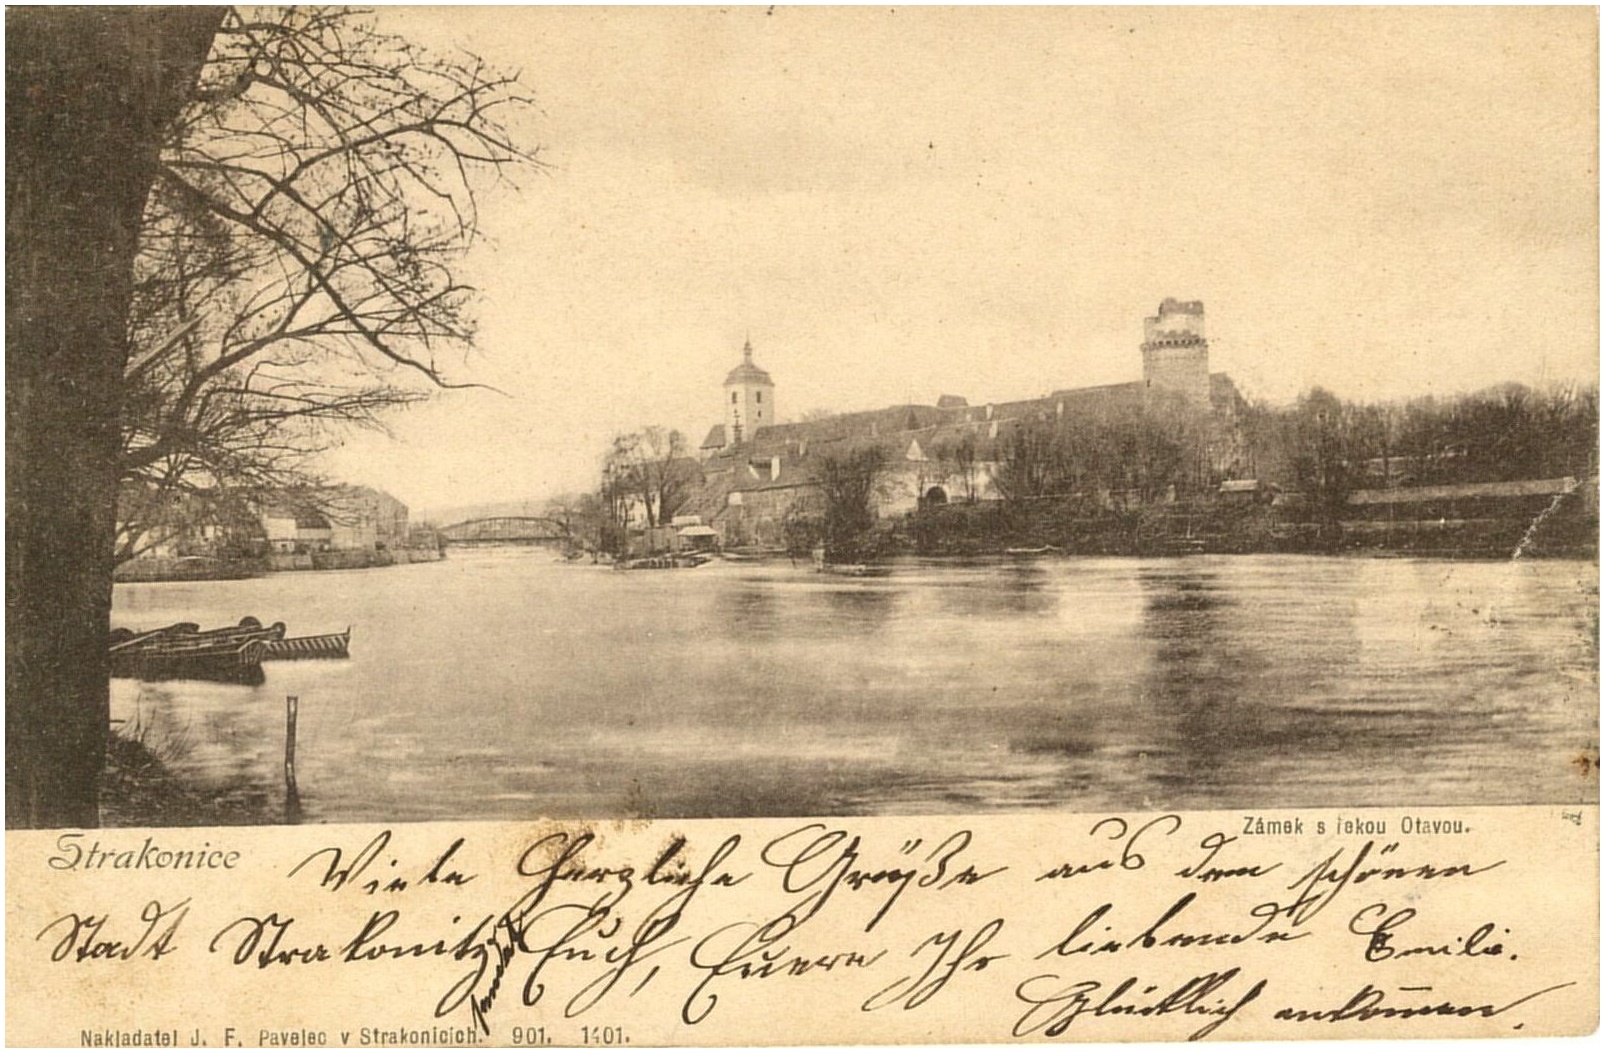 Zámek s řekou Otavou.
Strakonice
Viele herzliche Grüße aus dem schönen
Stadt Strakonitz sendet Euch, Euere Ihr liebende Emilie.
Glücklich ankommen.
Nakladatel J. F. Pavelec v Strakonicích. 901. 1401.